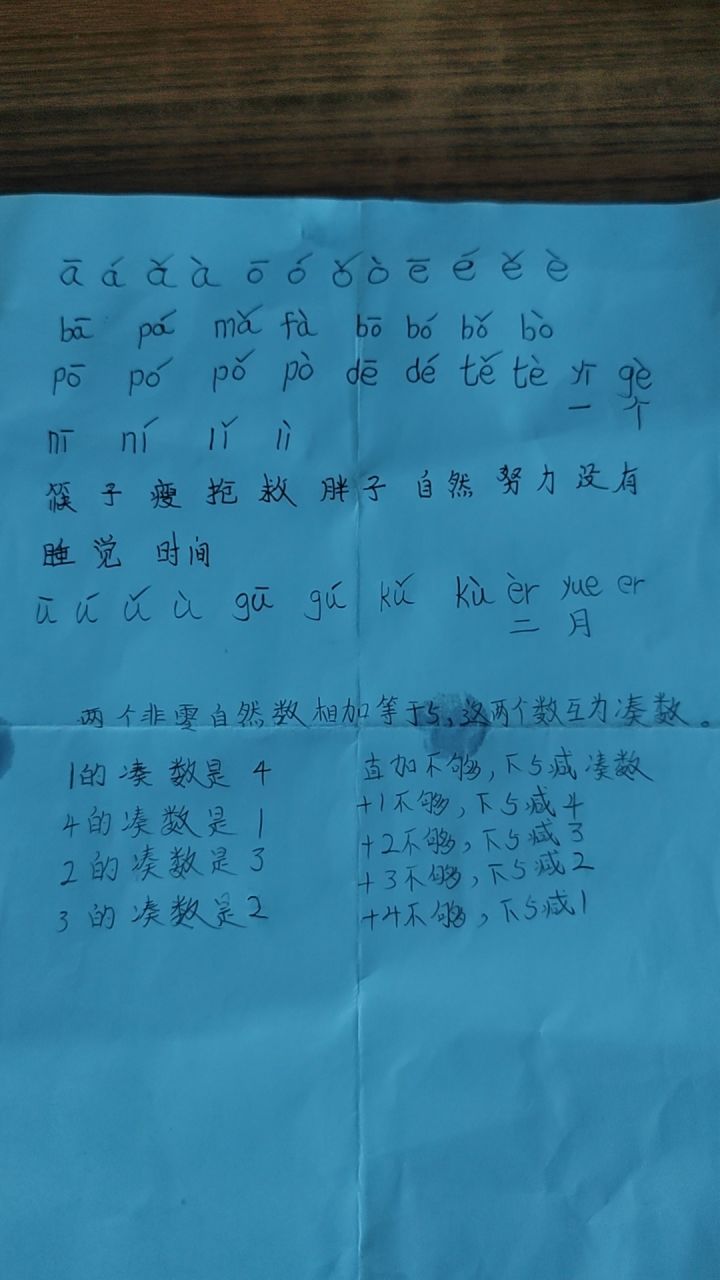 ā á ǎ à ō ó ǒ ò ē é ě è
bā pá mǎ fà bō bó bǒ bò
pō pó pǒ pò dē dé tě tè yī gè
一 个
nī ní lǐ lì
筷 子 瘦 抢 救 胖 子 自 然 努 力 没 有
睡 觉 时间
ū ú ǔ ù gū gú kǔ kù èr yue er
二 月
两个非零自然数相加等于5,这两个数互为凑数。
1的凑数是4
4的凑数是1
2的凑数是3
3的凑数是2
直加不够,下5减凑数
+1不够,下5减4
+2不够,下5减3
+3不够,下5减2
+4不够,下5减1